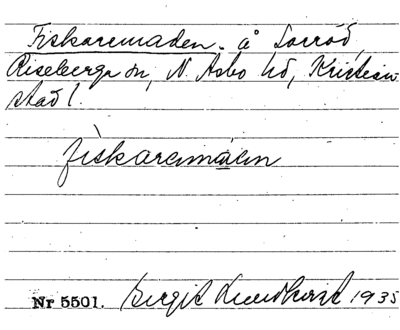 Fiskaremaden. å Sorröd,
Riseberga sn, N. Asbo hd, Kristian
stad l.
fiskaremáen
Nr 5501. Birgit Lundkvist 1935